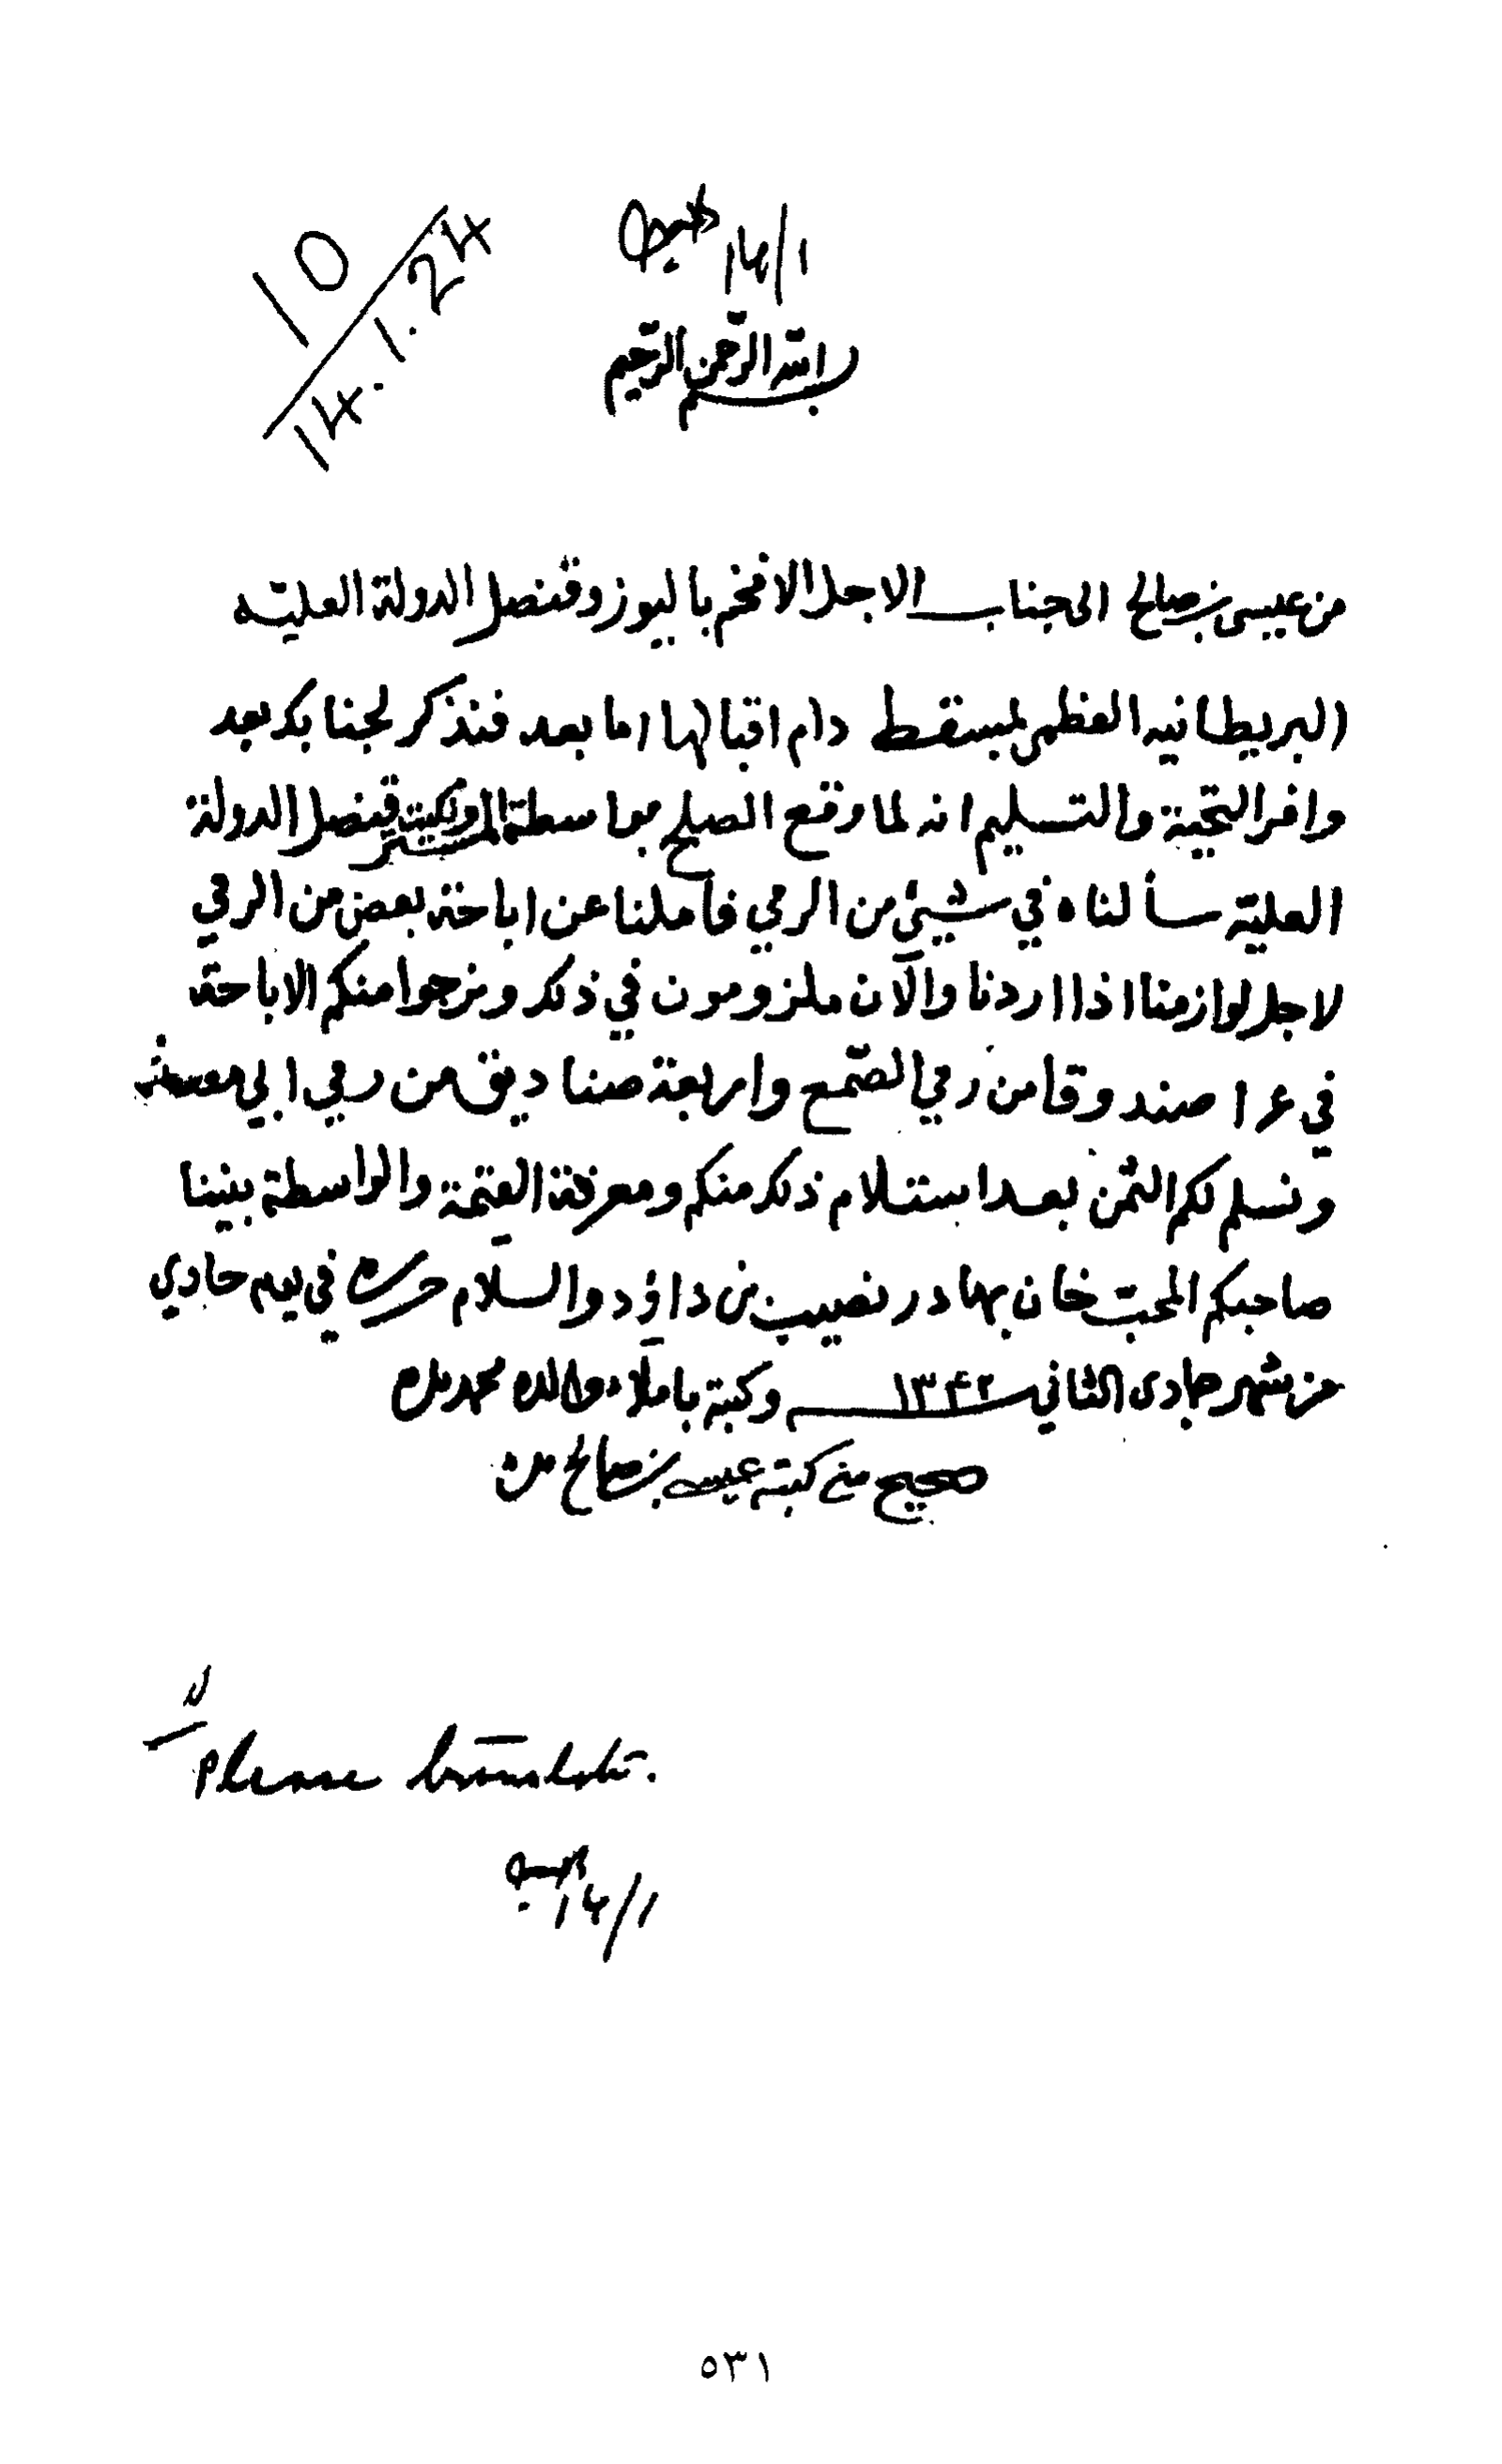 10
14.1.24
14/1
بسم الله الرحمن الرحيم
من عيسى بن صالح الى جناب الاجل الافخم باليوز وقنصل الدولة العليّه
البريطانيه العظمى بمسقط دام اقبالها اما بعد فنذكر لجنابكم بعد
وافر التحية والتسليم انه لما وقع الصلح بواسطة قنصل الدولة
العليّة سألناه في شيئ من الرمي فأملنا عن اباحة بعض من الرمي
لاجل لوازمنا اذا اردنا والآن ملزومون في ذلك ونرجوا منكم الاباحة
في ١٤ صندوقا من رمي الصّمع واربعة صناديق من رمي ابي
ونسلم لكم الثمن بعد استلام ذلك منكم ومعرفة القيمة والواسطة بيننا
صاحبكم المحبّ خان بهادر نصيب بن داؤد والسلام حرر في يوم حادي
من شهر جمادى الثاني سـ١٣٤٢ـنة وكتبه باملآء والده محمد
صحيح مني كتبته عيسى بن صالح
Please translate.
14/1
٥٣١